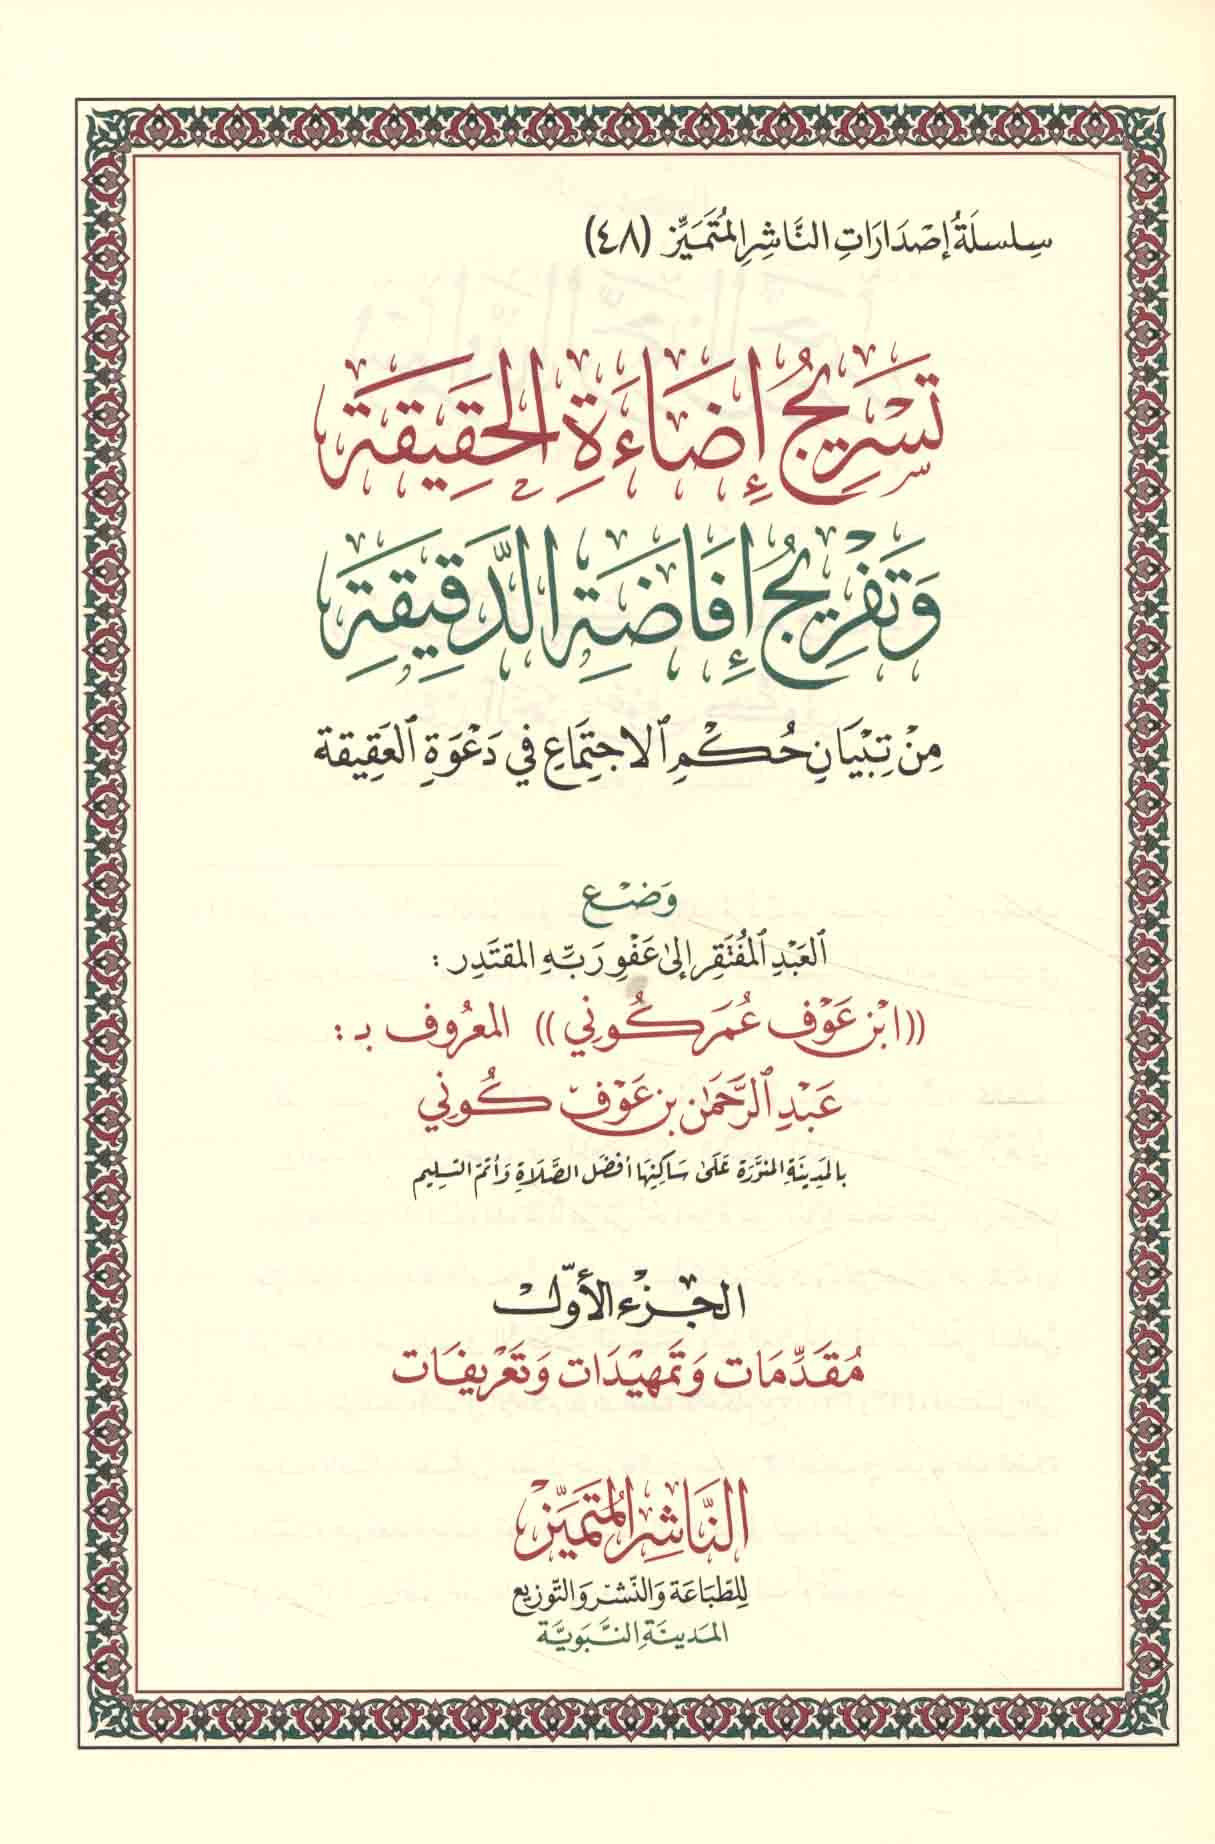 سِلسلَةُ إصْدَارَاتِ النَّاشِرِ المُتَمَيِّز (٤٨)
تَسْرِيجُ إِضَاءَةِ الحَقِيقَةِ
وَتَفْرِيجُ إِفَاضَةِ الدَّقِيقَةِ
مِنْ تِبْيَانِ حُكْمِ الاجتِمَاعِ في دَعْوَةِ العَقِيقة
وَضْع
العَبْدِ المُفْتَقِرِ إلى عَفْوِ رَبِّهِ المقتَدِر :
((ابْن عَوْف عُمَر كُوني)) المعرُوف بـ :
عَبْدِ الرَّحْمَن بن عَوْف كُوني
بالمَدِينَةِ المنَوَّرَة عَلَى سَاكِنِهَا أفضَل الصَّلَاةِ وَأتمّ التسلِيم
الجزء الأوّل
مُقَدِّمَات وَتمهِيْدَات وَتَعْرِيفَات
النَّاشِرُ المُتَمَيِّز
للطّبَاعَة وَالنّشر وَالتّوزيع
المَدينَةِ النَّبَوِيَّة